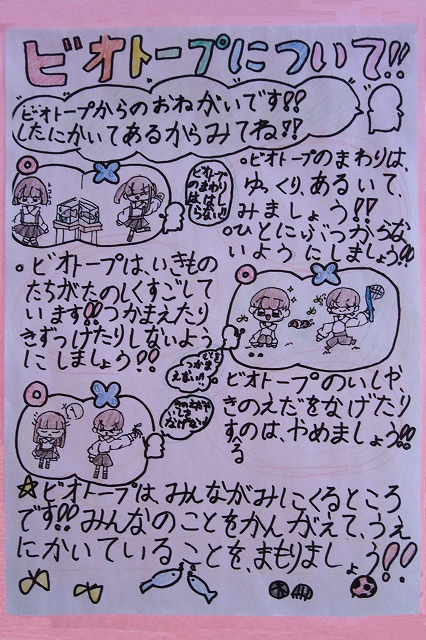 ビオトープについて!!
"ビオトープからのおねがいです!!
したにかいてあるからみてね!!"
ビオトープの
まわりは
はしらない!!
・ビオトープのまわりは、
ゆっくり、あるいて、
みましょう!!
・ひとにぶつからな
いようにしましょう!!
・ビオトープは、いきもの
たちがたのしくすごして
います!!つかまえたり
きずつけたりしないよう
にしましょう!!
ビオトープのいしや、
きのえだをなげたり
するのは、やめましょう!!
☆ビオトープは、みんながみにくるところ
です!!みんなのことをかんがえて、うえ
にかいていることを、まもりましょう!!